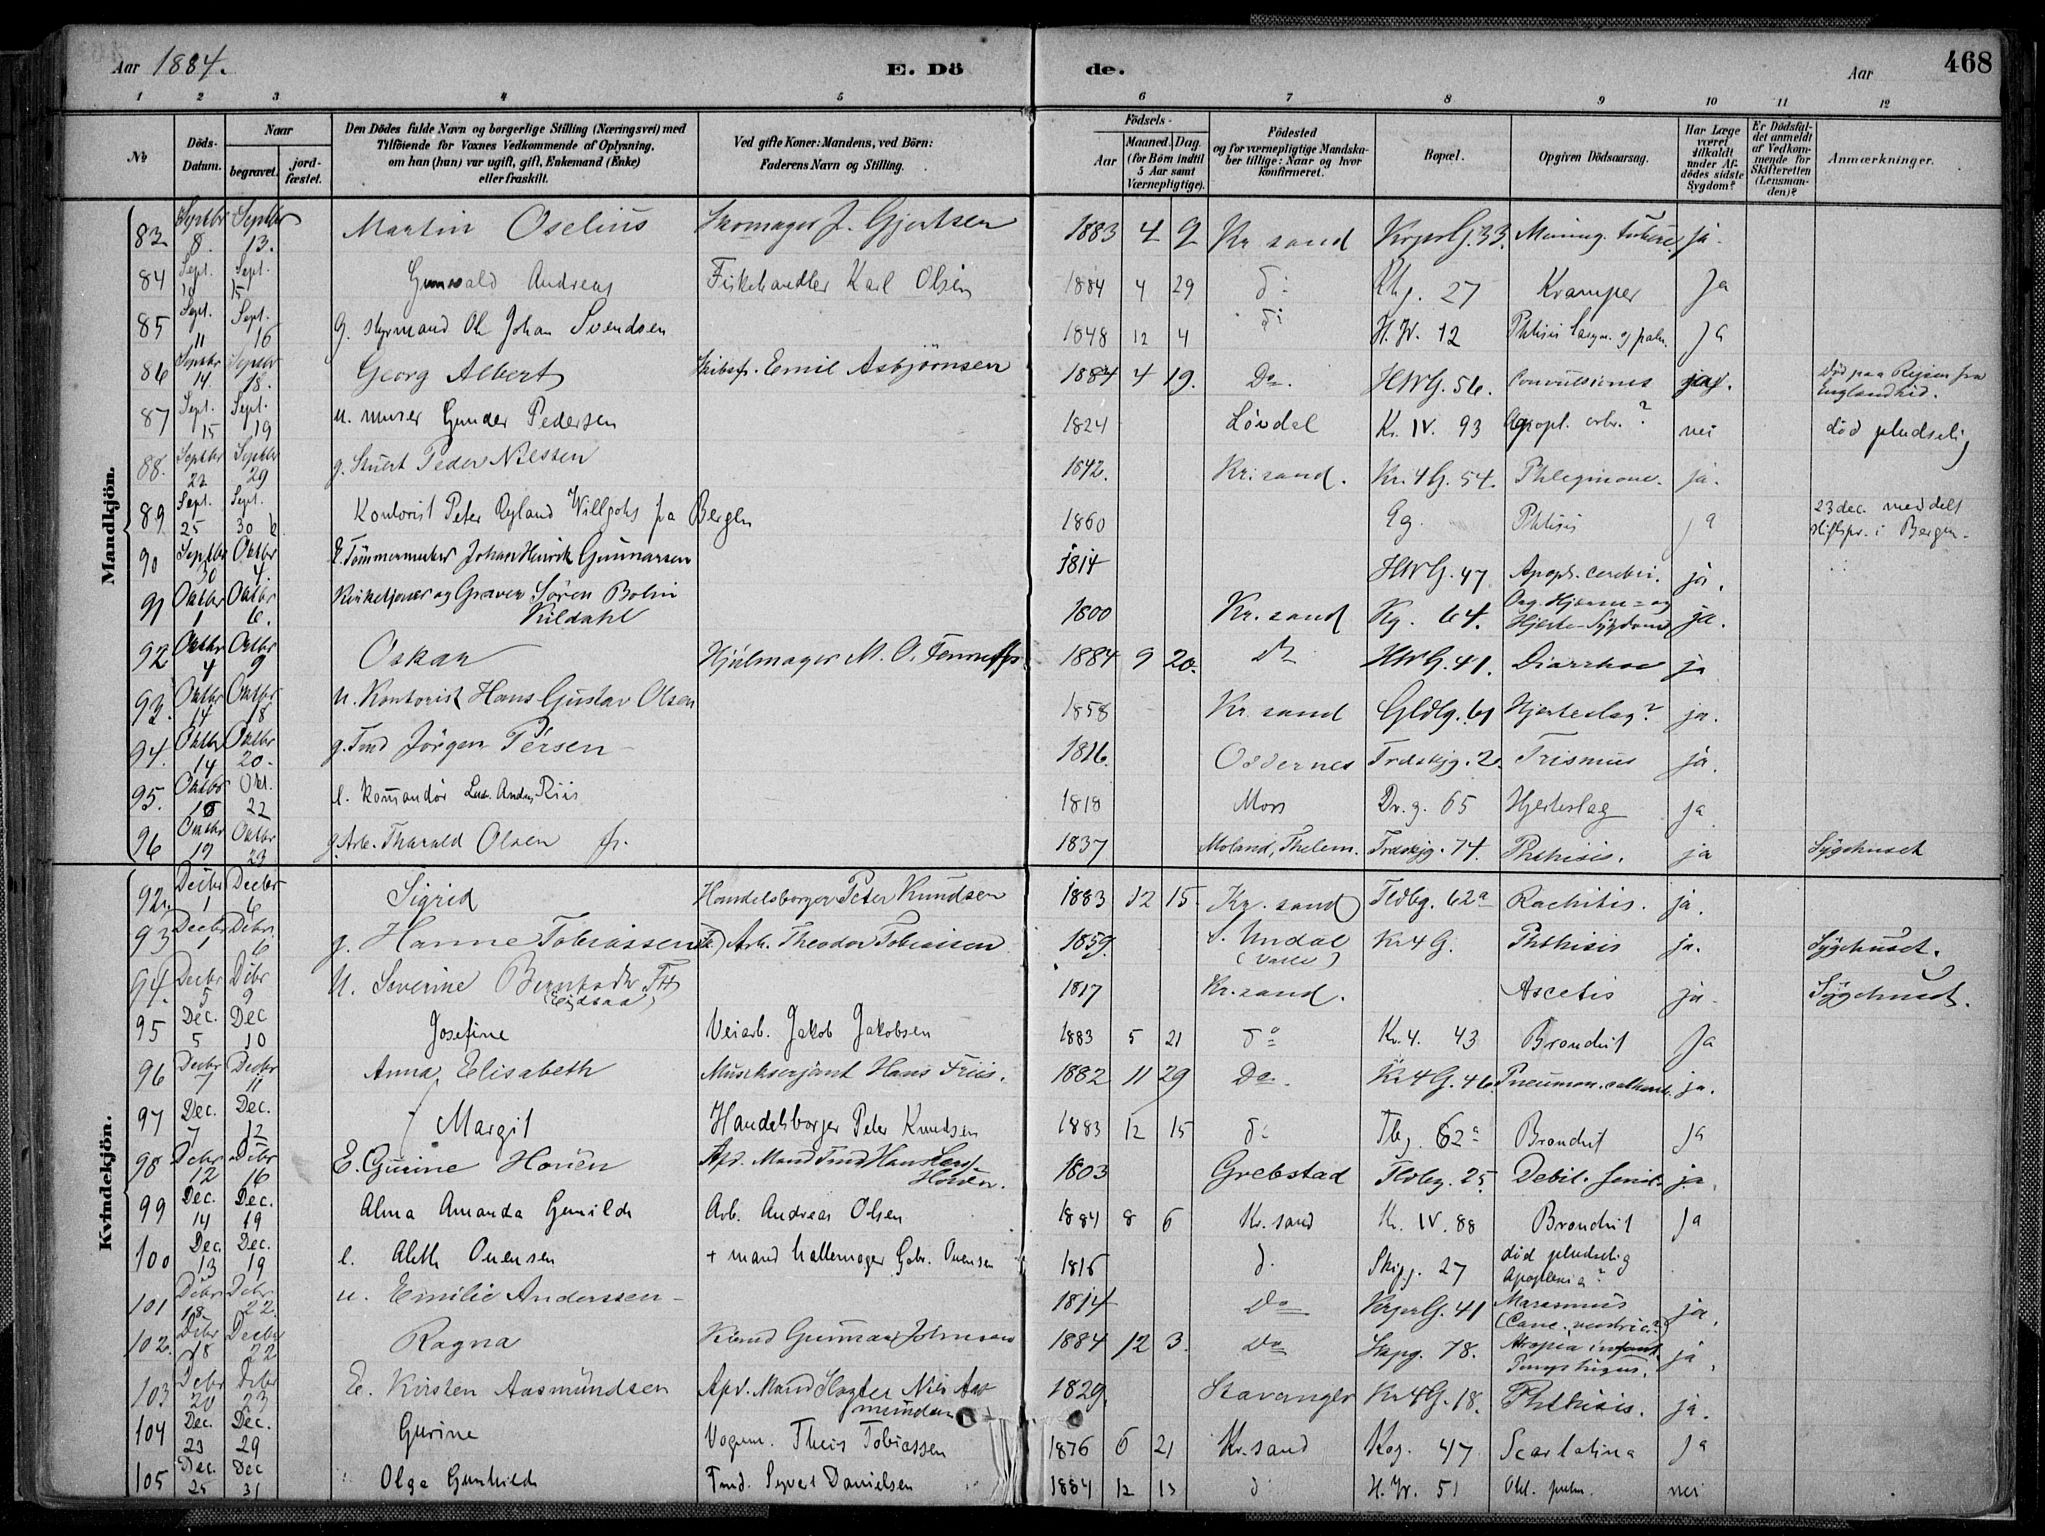 Aar 1884. E. Dö de. Aar 468
1 2 3 4 5 6 7 8 9 10 11 12
No
Döds-Datum.
Naar begravet. jordfæstet.
Den Dödes fulde Navn og borgerlige Stilling (Næringsvei) med
Tilföiende for Voxnes Vedkommende af Oplysning.
om han (hun) var ugift, gift, Enkemand (Enke)
eller fraskilt.
Ved gifte Koner: Mandens, ved Börn:
Faderens Navn og Stilling.
Födsels-
Aar Maaned. Dag. (for Börn indtil 5 Aar samt Værnepligtige).
Födested
og for værnepligtige Mandskaber tillige: Naar og hvor konfirmeret.
Bopæl.
Opgiven Dödsaarsag.
Har Læge været tilkaldt under Afdödes sidste Sygdom?
Er Dödsfaldet anmeldt af Vedkommende for Skifteretten (Lensmanden)?
Anmærkninger.
Mandkjön.
83 Septbr 8. Septbr 13. Martin Oselius Skomager J. Gjertsen 1883 4 9 Kr sand KrperG. 33. Mening. tuberc. ja.
84 Sept. 10 Sept. 15 Gunvald Andreas Fiskehandler Karl Olsen 1884 4 29 do 27 Kramper Ja
85 Sept. 11 Sept. 16 g. styrmand Ole Johan Svendsen 1848 12 4 do H.W. 12 Phtisis laryn. og pulm. Ja
86 Septbr 14. Septbr 18. Georg Albert Skibsf. Emil Asbjörnsen 1884 4 19. Do. HWG. 56. Convulsiones ja. Död paa Rejsen fra Englandhid.
87 Sept. 15 Sept. 19 u. murer Gunder Pedersen 1824 Lövdal Kr. IV. 93 Apopl. crbr.? nei död pludselig
88. Septbr 22 Septbr 29 g. Stuert Peder Nilssen 1842. Kr.sand. Kr.4G.54. Phlegmone. ja.
89 Sept. 25 Sept. 30 Kontorist Peter Ryland Willjohs fra Bergen 1860 Phtisis Ja 23 dec. meddelt stiftspr. i Bergen.
90 Septbr 30 Oktbr 4. E. Tömmermester Johan Henrik Gunnarsen 1814 HWG. 47 Apopl. cerebri. ja.
91 Oktbr 1 Oktbr 6. Kirketjener og Graver Sören Bolin Kildahl 1800 Kr.sand Kg. 64. Org. Hjerne= og Hjerte-Sygdom ja.
92 Oktbr 4 Oktbr 9 Oskar Hjulmager M. O. 1884 9 20. Do HWG. 41. Diarrhoe ja
93. Oktbr 14 Oktbr 18 u. Kontorist Hans Gustav Olsen 1858 Kr.sand Gldlg. 61 Hjerteslag? ja.
94. Oktbr 14 Oktbr 20. g. Tmd Jörgen Persen 1816. Oddernes Trdskjg. 2. Trismus ja.
95. Oktbr 16 Okt. 22 e. Komandör Ludv. Anders Riis 1818 Mors Dr.g. 65 Hjerteslag ja
96 Oktbr 19 Oktbr 23 g. Arb. Tharald Olsen fr. 1837 Moland, Thelem. Trdskjg. 74. Phthisis. ja Sygehuset
Kvindekjön.
92. Decbr 1 Decbr 6 Sigrid Handelsborger Peter Knudsen 1883 12 15. Kr. sand Tldbg. 62a Rachitis. ja.
93 Decbr 1 Debr. 6 g. Hanne Tobiassen Arb. Theodor Tobiasen 1859. S. Undal (Valle) Kr4G. Phthisis ja. Sygehuset.
94. Decbr 5 Dcbr 9 U. Severine (Eidsaa) 1817 Kr.sand. Ascetis ja. Sygehuset.
95 Dec. 5 Dec 10 Josefine Veiarb. Jakob Jakobsen 1883 5 21 do Kr. 4. 43 Bronchit Ja
96 Decbr 7 Decbr 11 Anna Elisabeth Musikserjant Hans Friis. 1882 11 29 Do. Kr4G.46. Pneumon. catharrh. ja.
97 Dec. 7 Dec. 12 Margit Handelsborger Peter Knudsen 1883 12 15 do Tbg. 62a Bronchit Ja
98 Debr 12 Dcbr 16 E. Gurine Houen Afd. Mand Tmd Hans Houen. 1803 Grebstad Tldbg. 25. Debil. senil. ja.
99 Dec. 14 Dec. 19 Alma Amanda Gunilde Arb. Andreas Olsen 1884 8 6 Kr.sand Kr. IV. 88 Bronchit Ja
100 Dec. 13 Dec. 19 e. Aleth Onensen + mand hattemager Gab. Onensen 1816 d. Skipg. 27 död pludselig Apoplexia?
101 Dcbr 18 Dcbr 22. u. Emilie Anderssen 1814 Do KrperG. 41 Marasmus (Canc. ventric.?) ja.
102. Dcbr 18 Decbr 22 Ragna Gunnar Johnsen 1884 12 3. Do Skpg. 78. Atropia infant. Pemphigus. ja.
103 Dcbr 20 Dcbr 23 E. Kirsten Aasmundsen Afd. Mand Nils Aasmundsen 1829. Stavanger Kr4G. 18. Phthisis. ja.
104 Dec. 23 Dec. 29 Gurine Vognm. Theis Tobiassen 1876 6 21 Kr.sand Kog. 47 Scarlatina Ja
105 Dec. 25 Dec 31 Olga Gunhilde Tmd. Syvert Danielsen 1884 12 13 d H. W. 51 nei